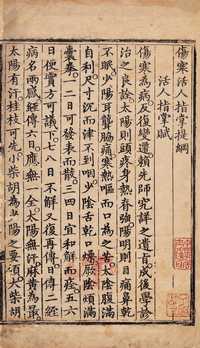 傷寒活人指掌提綱
活人指掌賦
傷寒為病反復變遷賴先師究詳之遺旨成後學診
治之良詮太陽則頭疼身熱脊強陽明則目痛鼻乾
不眠少陽耳聾脇痛寒熱嘔而口為之苦太陰腹滿
自利尺寸沉而津不到咽少陰舌乾口燥厥陰煩滿
囊拳一二日可發表而散三四日宜和解而痊五六
日便實方可議下七八日不解又復再傳日傳二經
病名兩感經傳六日應無一全太陽無汗麻黃為最
太陽有汗桂枝可先小柴胡為少陽之要領大柴胡